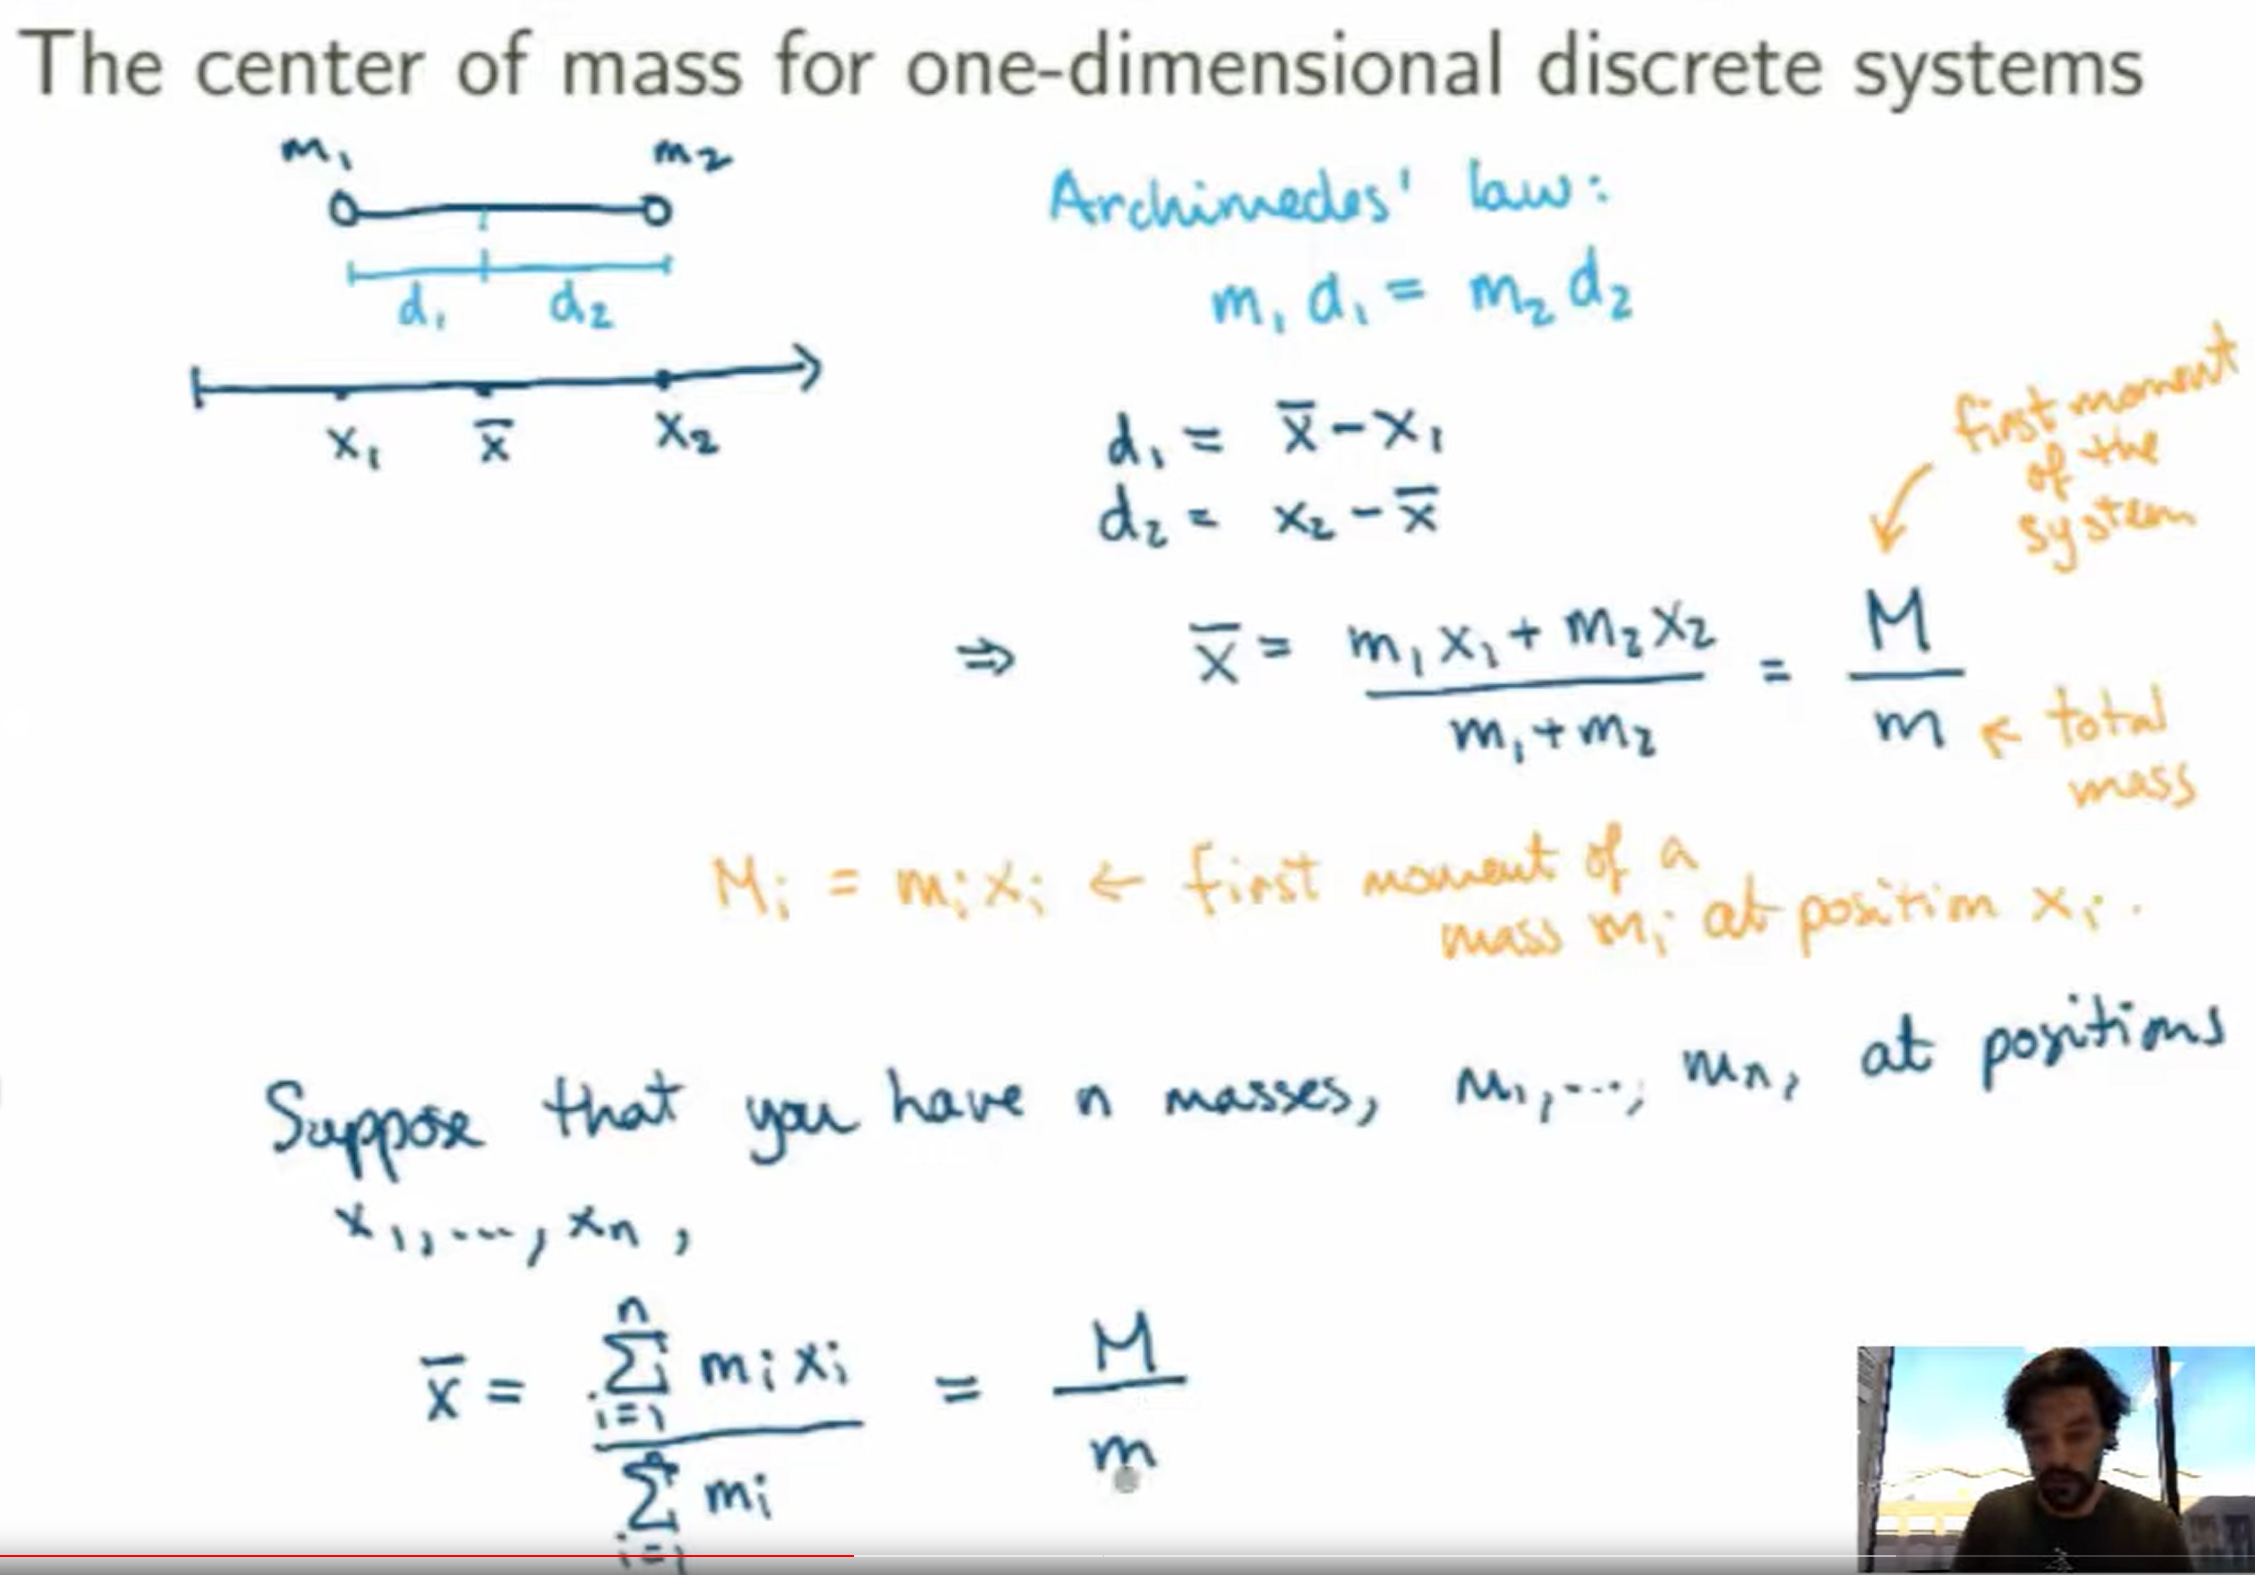 The center of mass for one-dimensional discrete systems
m₁ m₂
d₁ d₂
x₁ x̄ x₂
Archimedes' law:
m₁ d₁ = m₂ d₂
d₁ = x̄ - x₁
d₂ = x₂ - x̄
first moment
of the
system
⇒ x̄ = (m₁ x₁ + m₂ x₂) / (m₁ + m₂) = M / m ← total
mass
Mᵢ = mᵢ xᵢ ← first moment of a
mass mᵢ at position xᵢ.
Suppose that you have n masses, m₁, ..., mₙ, at positions
x₁, ..., xₙ,
x̄ = (∑ᵢ₌₁ⁿ mᵢ xᵢ) / (∑ᵢ₌₁ⁿ mᵢ) = M / m